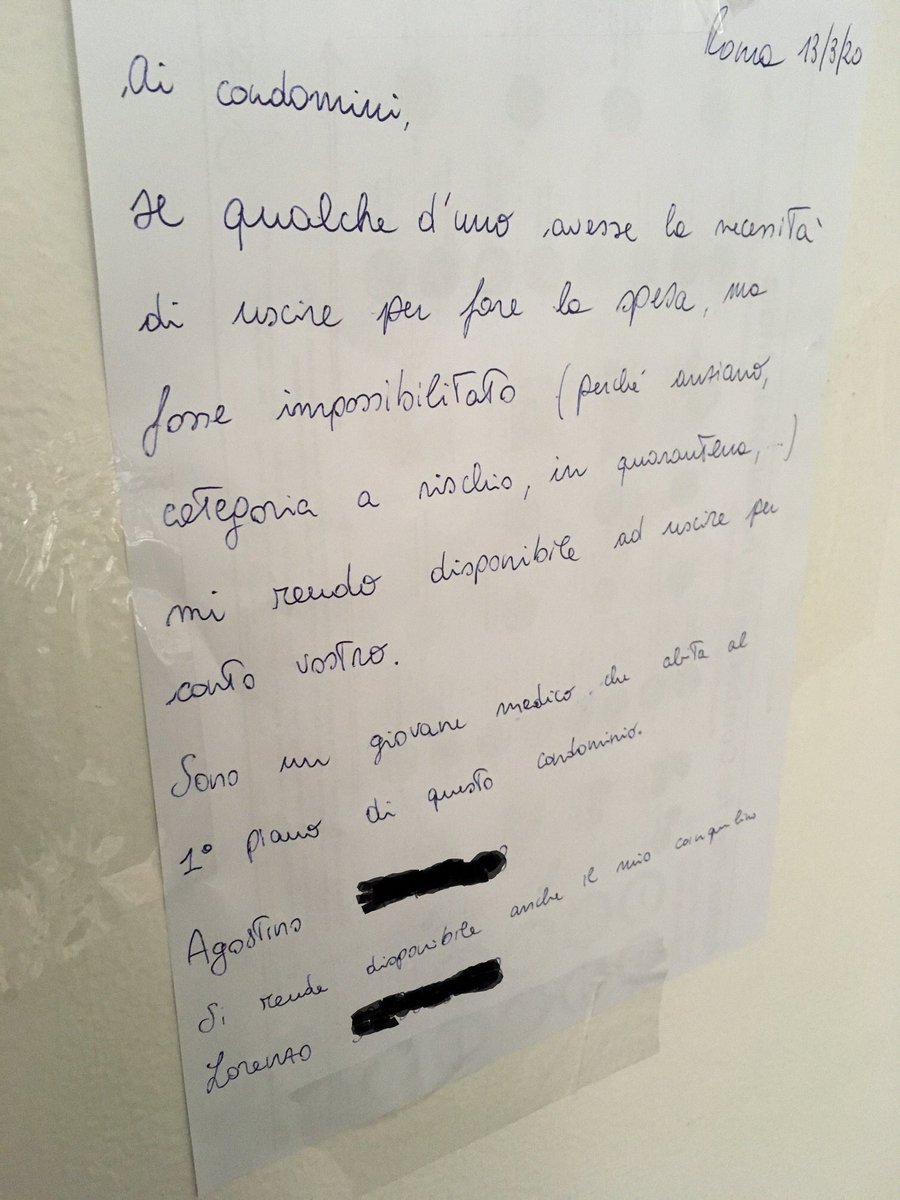 Roma 13/3/20
Ai condomini,
se qualche d'uno avesse la necessità
di uscire per fare la spesa, ma
fosse impossibilitato (perché anziano,
categoria a rischio, in quarantena,...)
mi rendo disponibile ad uscire per
conto vostro.
Sono un giovane medico che abita al
1° piano di questo condominio.
Agostino
Si rende disponibile anche il mio coinquilino
Lorenzo